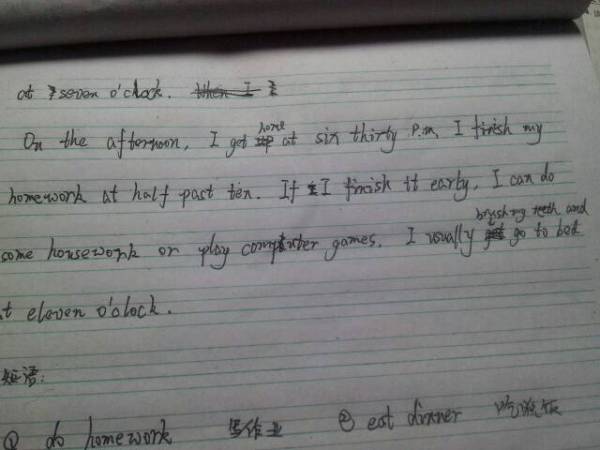 at seven o'clock. When I
On the afternoon, I get home at six thirty p.m. I finish my
homework at half past ten. If I finish it early, I can do
some housework or play computer games. I usually brushing teeth and go to bed
at eleven o'clock.
短语:
① do homework 写作业 ② eat dinner 吃晚饭